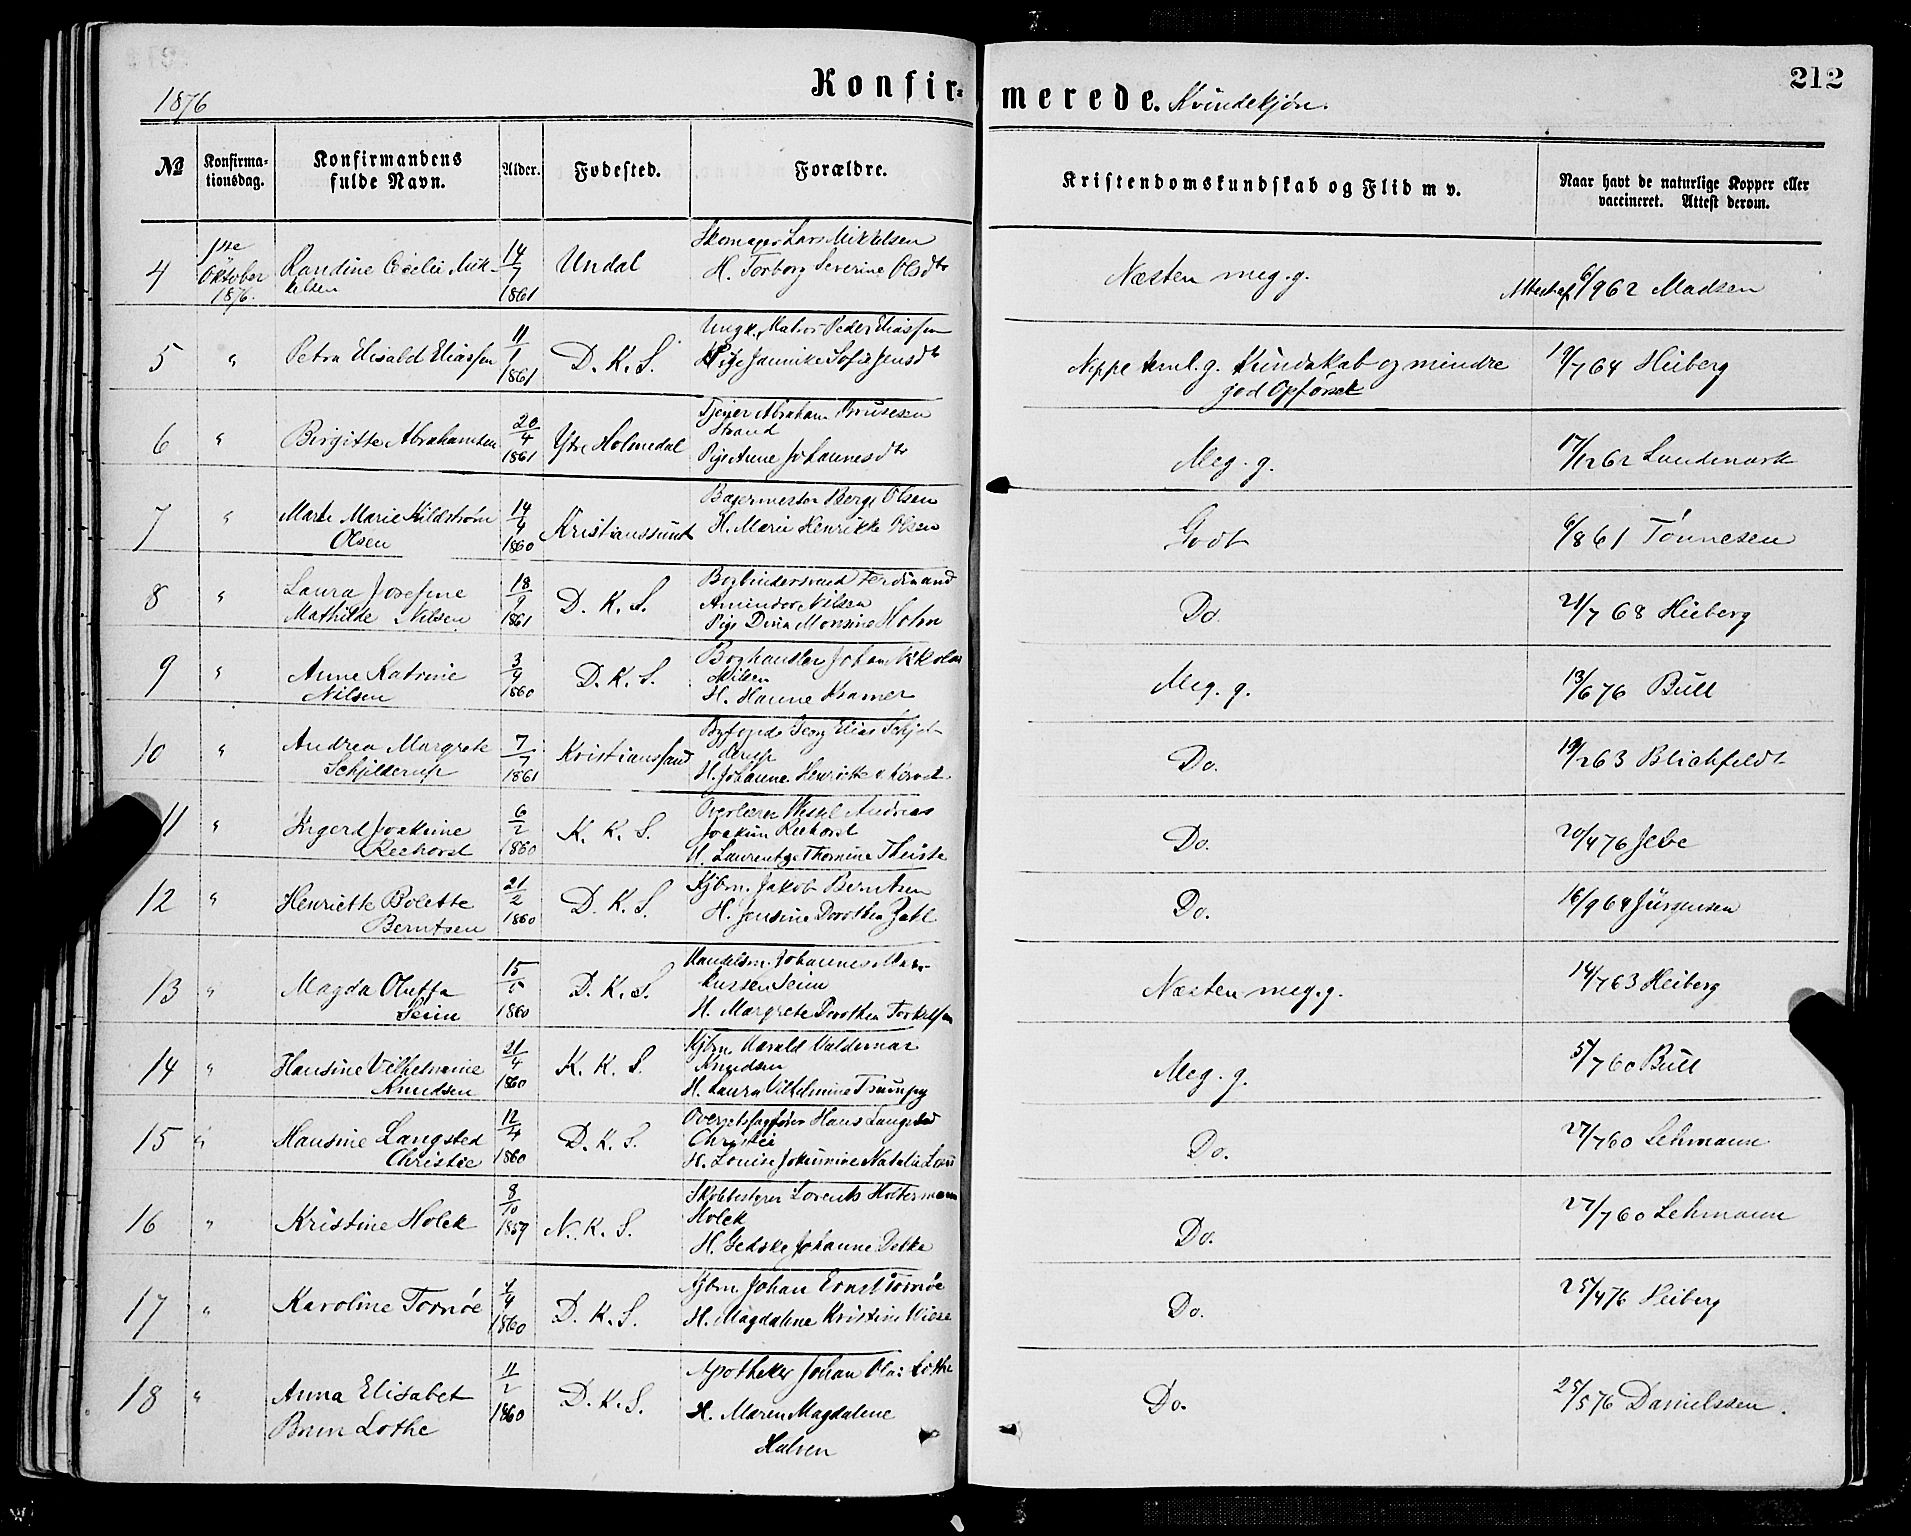 1876
Konfirmerede. Kvindekjøn.
212
№
Konfirma-
tionsdag.
Konfirmandens
fulde Navn.
Alder.
Fødested.
Forældre.
Kristendomskundskab og Flid m v.
Naar havt de naturlige Kopper eller
vaccineret. Attest derom.
4 1ste Oktober 1876. Randine Mikkelsen 14/7 1861 Undal
Skomager Lars Mikkelsen
H. Torborg Severine Olsdtr
Næsten meg. g.
6/9 62 Madsen
5 " Petra Elisald Eliassen 11/1 1861 D. K. S.
Ungk. Matros Peder Eliassen
Pige Jannike Sofie Jensdtr
Neppe teml. g. Kundskab og mindre
god Opførsel
19/7 64 Heiberg
6 " Birgitte Abrahamsen 20/4 1861 Ytre Holmedal
Tjener Abraham
Strand
Pige Anne Johannesdtr
Meg. g.
17/12 62 Landmark
7 " Marte Marie Kildstrøm
Olsen 14/4 1860 Kristianssund
Bagermester Berge Olsen
H. Marie Henrikke Olsen
Godt
6/8 61 Tønnesen
8 " Laura Josefine
Mathilde Nilsen 18/9 1861 D. K. S.
Bogbindersvend Ferdinand
Amindor Nilsen
Pige Dina Monsine Holm
Do.
21/7 68 Heiberg
9 " Anne Katrine
Nilsen 3/4 1860 D. K. S.
Boghandler Johan Nikolai
Nilsen
H. Hanne Kramer
Meg. g.
13/6 76 Bull
10 " Andrea Margrete
Schjelderup 7/7 1861 Kristianssand
Byfoged Georg Elias Schjel-
derup
H. Johanne Henriette
Do.
19/2 63 Blichfeldt
11 " Ingerd Joakime
Reehorst 6/2 1860 K. K. S.
Overlærer Wessel Andreas
Joakim Reehorst
H. Laurentze Thomine Theiste
Do.
20/4 76 Jebe
12 " Henriette Bolette
Berntsen 21/2 1860 D. K. S.
Kjbm. Jakob Berntsen
H. Jensine Dorothea Zahl
Do.
16/9 64 Jürgensen
13 " Magda Oluffa
Seim 15/5 1860 D. K. S.
Handelsm. Johannes Mar-
kussen Seim
H. Margrete Dorothea Torkelsen
Næsten meg. g.
14/7 63 Heiberg
14 " Hansine Vilhelmine
Knudsen 21/4 1860 K. K. S.
Kjbm. Harald Valdemar
Knudsen
H. Laura Vilhelmine Trumpy
Meg. g.
5/7 60 Bull
15 " Hansine Langsted
Christie 12/4 1860 D. K. S.
Overretssagfører Hans Langsted
Christie
H. Louise Jokumine Natalia
Do.
27/7 60 Lehmann
16 " Kristine Holck 8/10 1859 N. K. S.
Skolebestyrer Lorents Holtermann
Holck
H. Gedske Johanne
Do.
27/7 60 Lehmann
17 " Karoline Tornøe 4/4 1860 D. K. S.
Kjbm. Johan Ernst Tornøe
H. Magdalene Kristine Wiese
Do.
25/4 76 Heiberg
18 " Anna Elisabet
Brun Lothe 11/2 1860 D. K. S.
Apotheker Johan Olai Lothe
H. Maren Magdalene
Halsen
Do.
25/5 76 Danielssen.